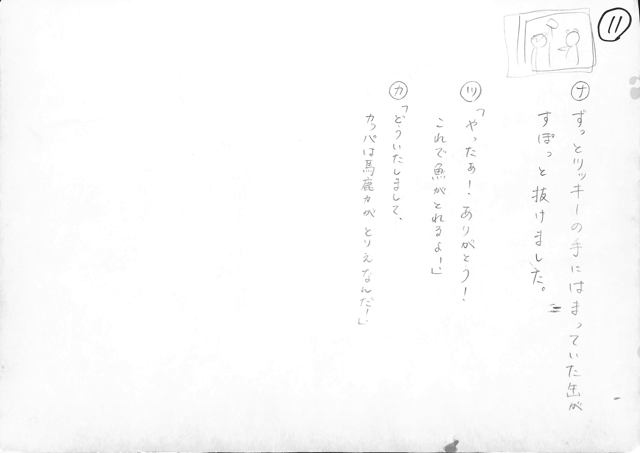 11
ナ ずっとツッキーの手にはまっていた缶が
すぽっと抜けました。
ツ「やったぁ！ありがとう！
これで魚がとれるよー！」
カ「どういたしまして、
カッパは馬鹿力がとりえなんだ！」